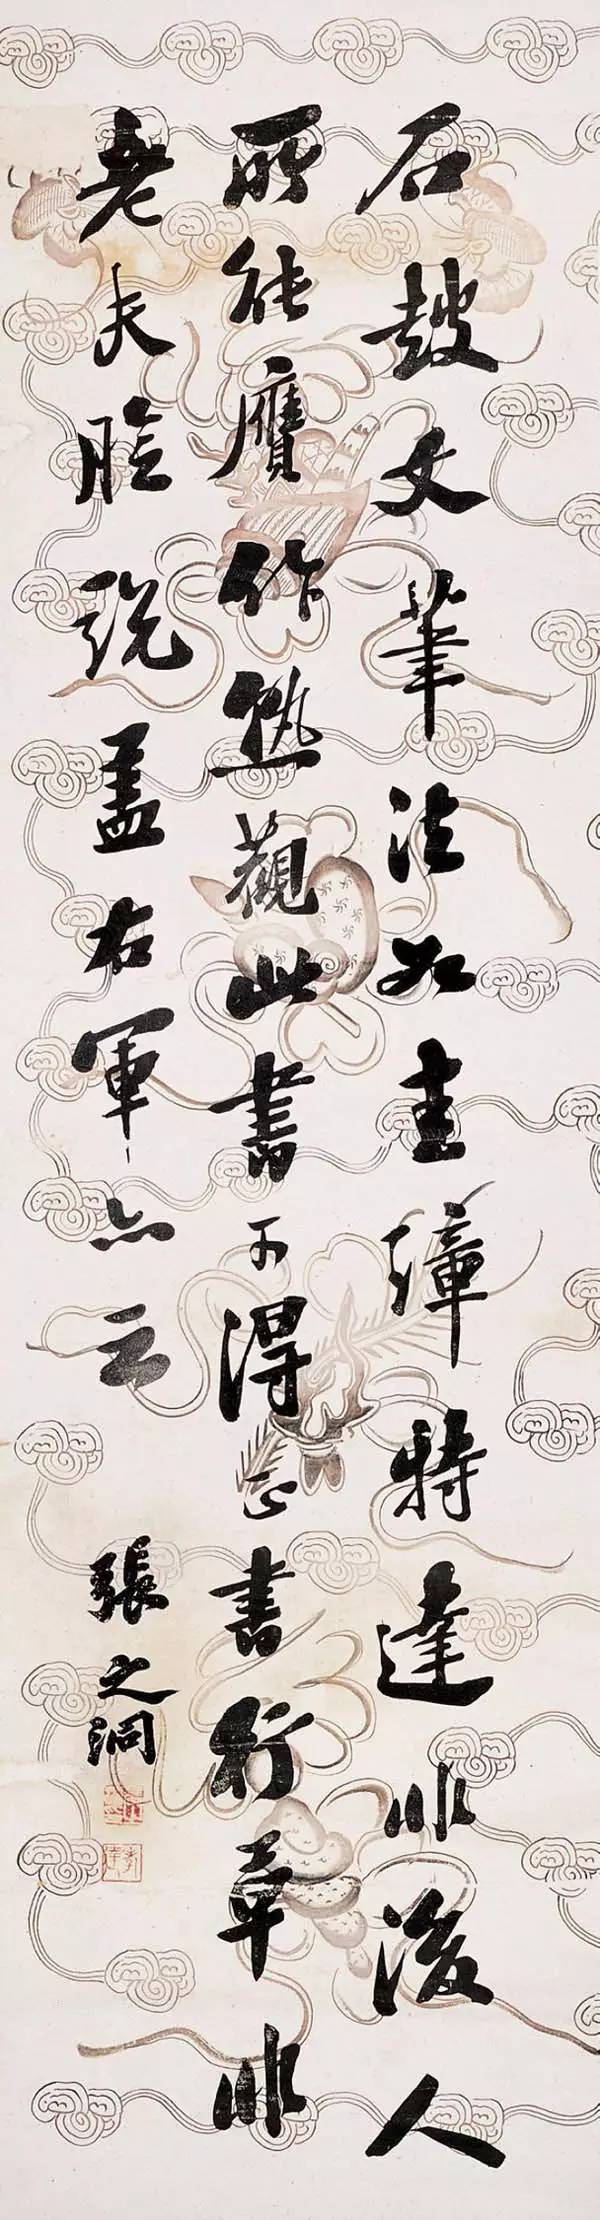 石鼓文筆法如圭璋特達非後人
所能贋作熟觀此書可得正書行草非
老夫臆說蓋右軍亦云
張之洞